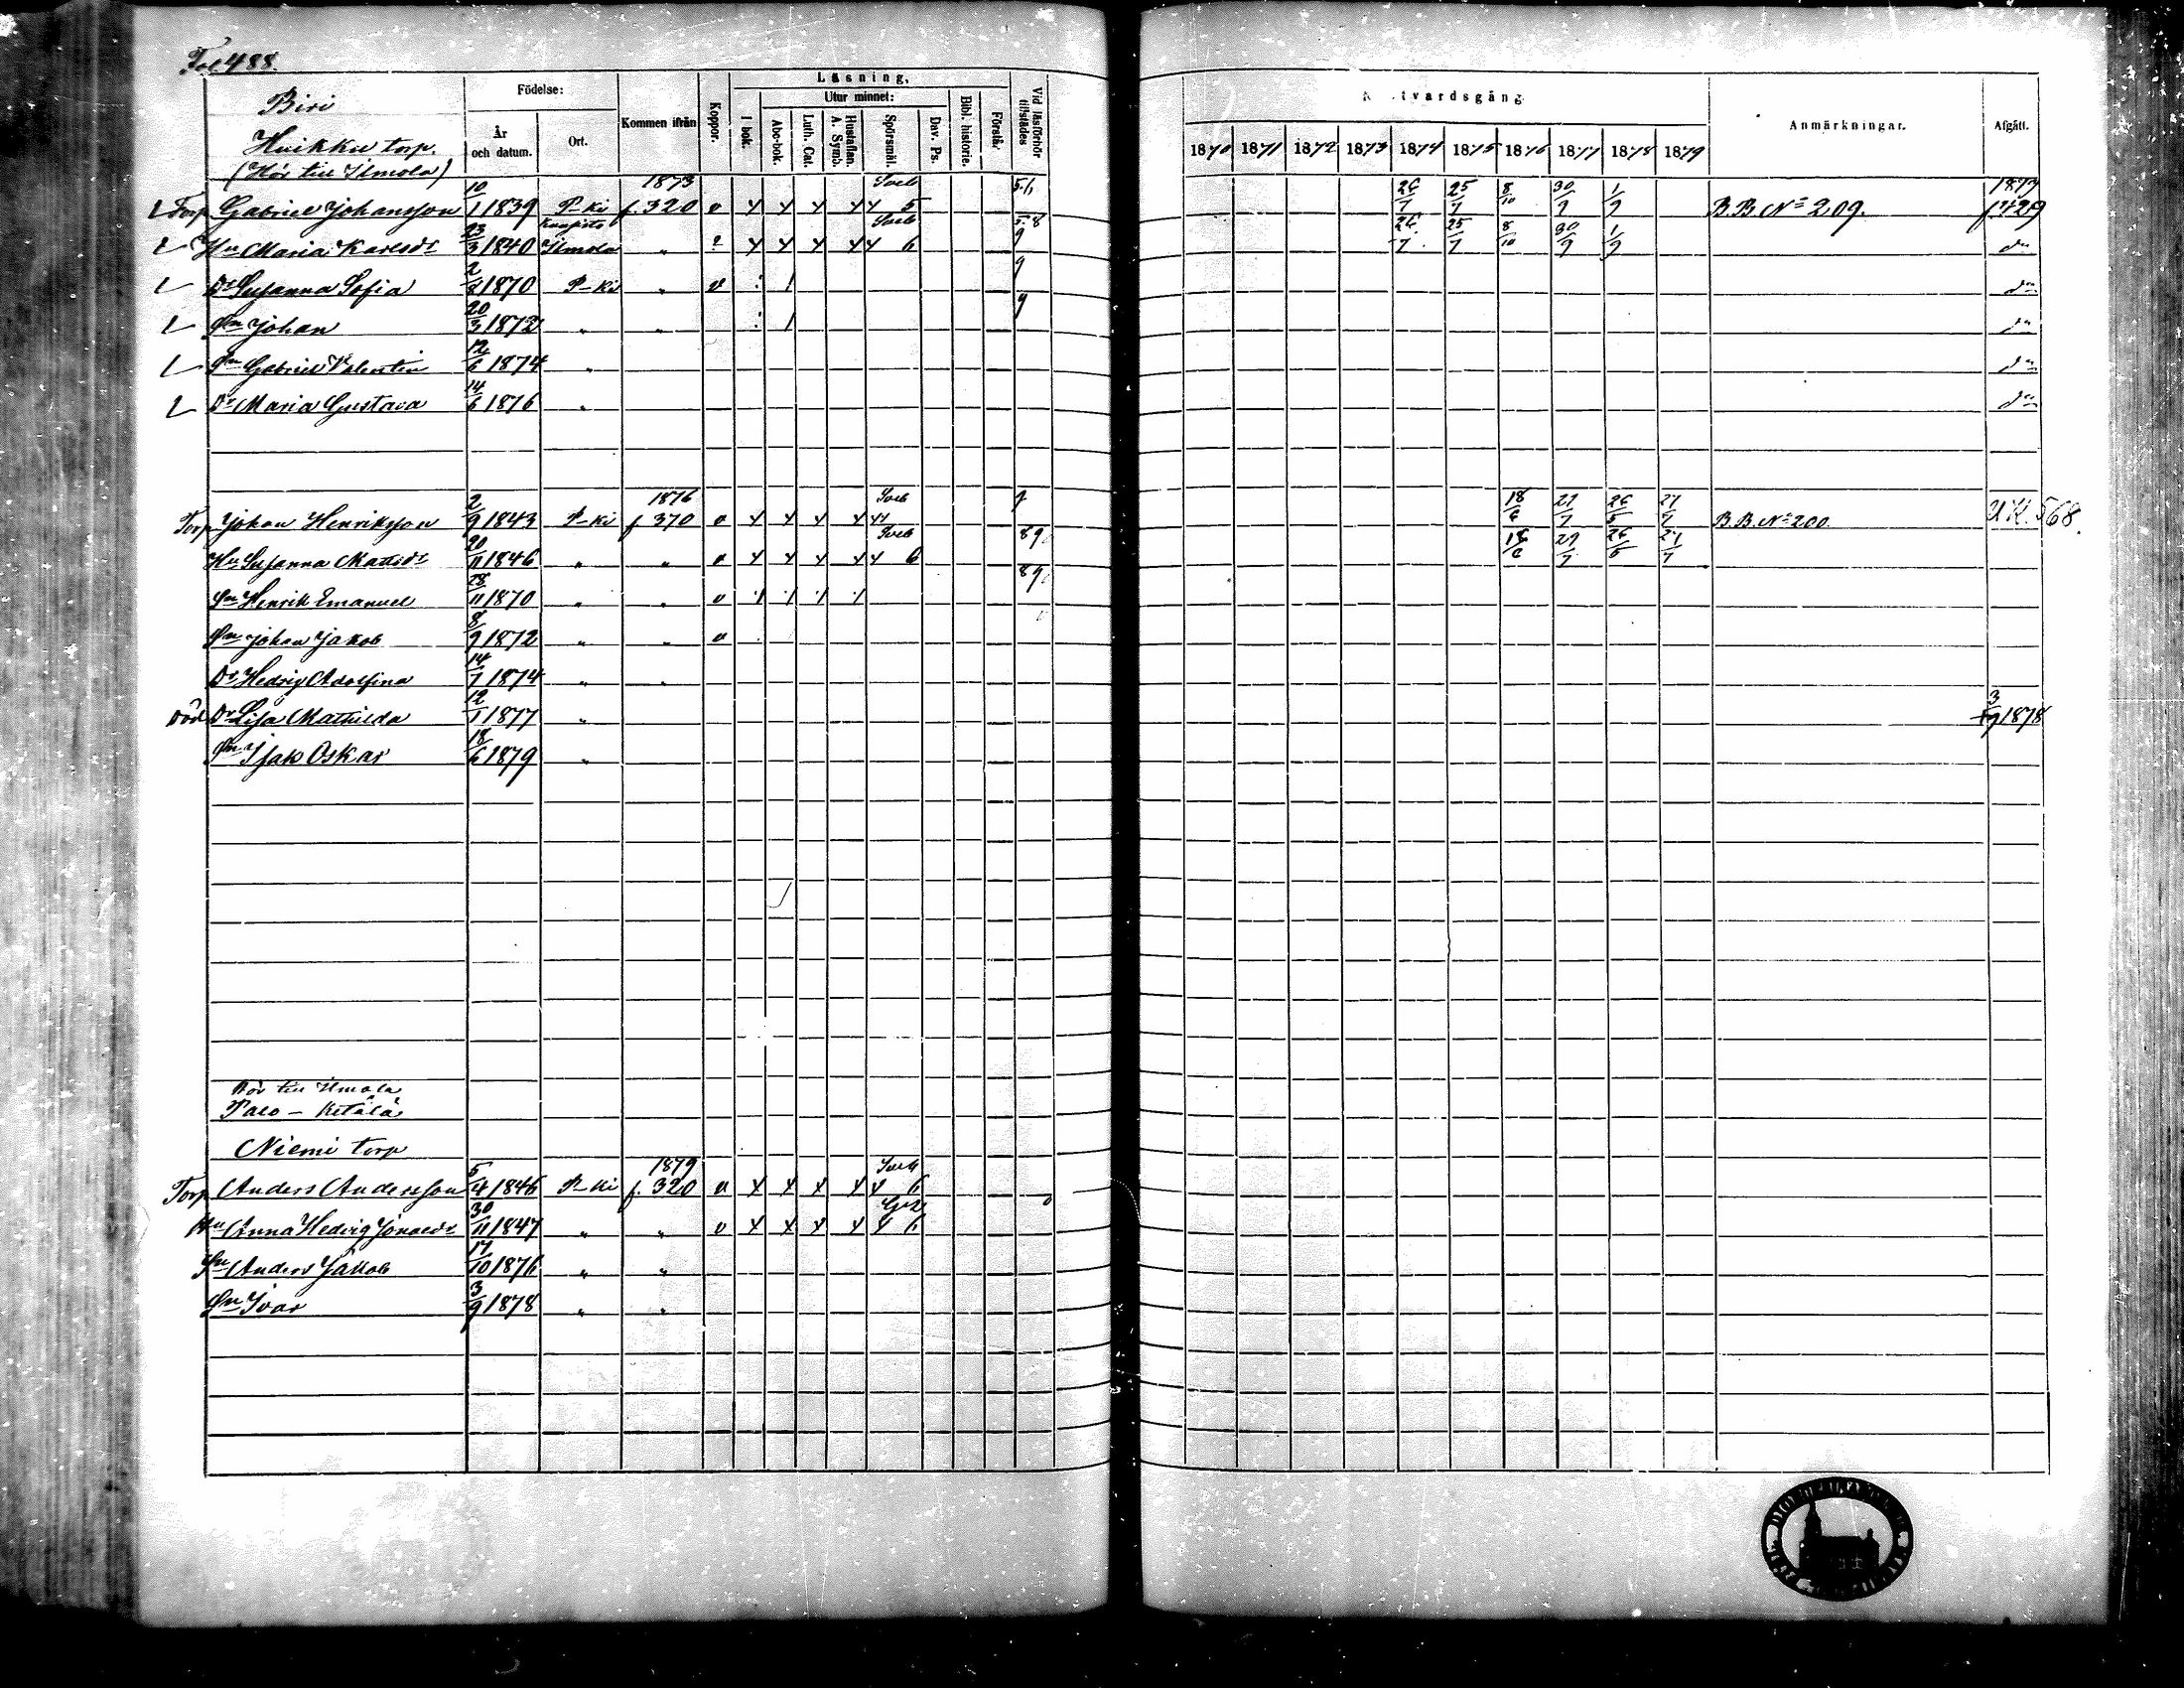 Fol 488.
Biri
Huikku torp.
(Hör till Ilmola)
Födelse:
År och datum.
Ort.
Kommen ifrån
Koppor.
Läsning.
I bok.
Utur minnet:
Abc-bok.
Luth. Cat.
Hustaflan. A. Symb.
Spörsmål.
Dav. Ps.
Bibl. historie.
Förstår
Vid läsförhör tillstädes
Nattvardsgång
1870 1871 1872 1873 1874 1875 1876 1877 1878 1879
Anmärkningar.
Afgått.
Torp Gabriel Johansson 10/1 1839 P-ki 1873 f. 320 v 5 26/7 25/7 8/10 30/9 1/9 B.B. No 209.
Hu Maria Karlsdr 23/3 1840 Ilmola " 6 26/7 25/7 8/10 30/9 1/9 do
Dr Susanna Sofia 2/8 1870 P-ki " v do
Sn Johan 20/3 1872 " " do
Sn Gabriel Valentin 12/6 1874 " do
Dr Maria Gustava 14/6 1876 " do
Torp Johan Henriksson 2/9 1843 P-ki 1876 f 370 v 18/6 27/7 26/5 27/7 B.B. No 200 U.K. 568.
Hu Susanna Mattsdr 20/11 1846 " " v 6 18/6 27/7 26/5 27/7
Sn Henrik Emanuel 28/11 1870 " " v
Sn Johan Jakob 8/9 1872 " " v
Dr Hedvig Adolfina 14/7 1874 " "
död Dr Lisa Mathilda 12/1 1877 " 1878
Sn Isak Oskar 18/6 1879 "
Hör till Ilmola
Palo-Ketala
Niemi torp
Torp Anders Andersson 5/4 1846 P-ki 1879 f. 320 v 6
Hu Anna Hedvig Jonaedr 30/11 1847 " " v 6
Sn Anders Jakob 17/10 1876 " "
Sn Ivar 3/9 1878 " "